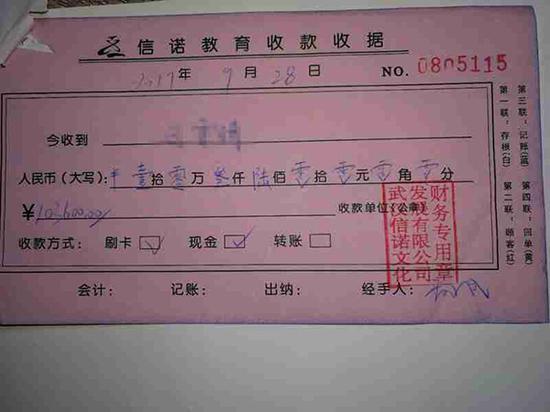 信诺教育收款收据
2017年 9月 28日 NO. 0805115
今收到
人民币(大写): 壹拾零万叁仟陆佰零拾零元零角零分
¥103600.00 收款单位(公章)
收款方式: 刷卡 现金 转账
会计: 记账: 出纳: 经手人:
武汉信诺文化
发展有限公司
财务专用章
第一联:存根(白) 第二联:顾客(红)
第三联:记账(蓝) 第四联:回单(黄)